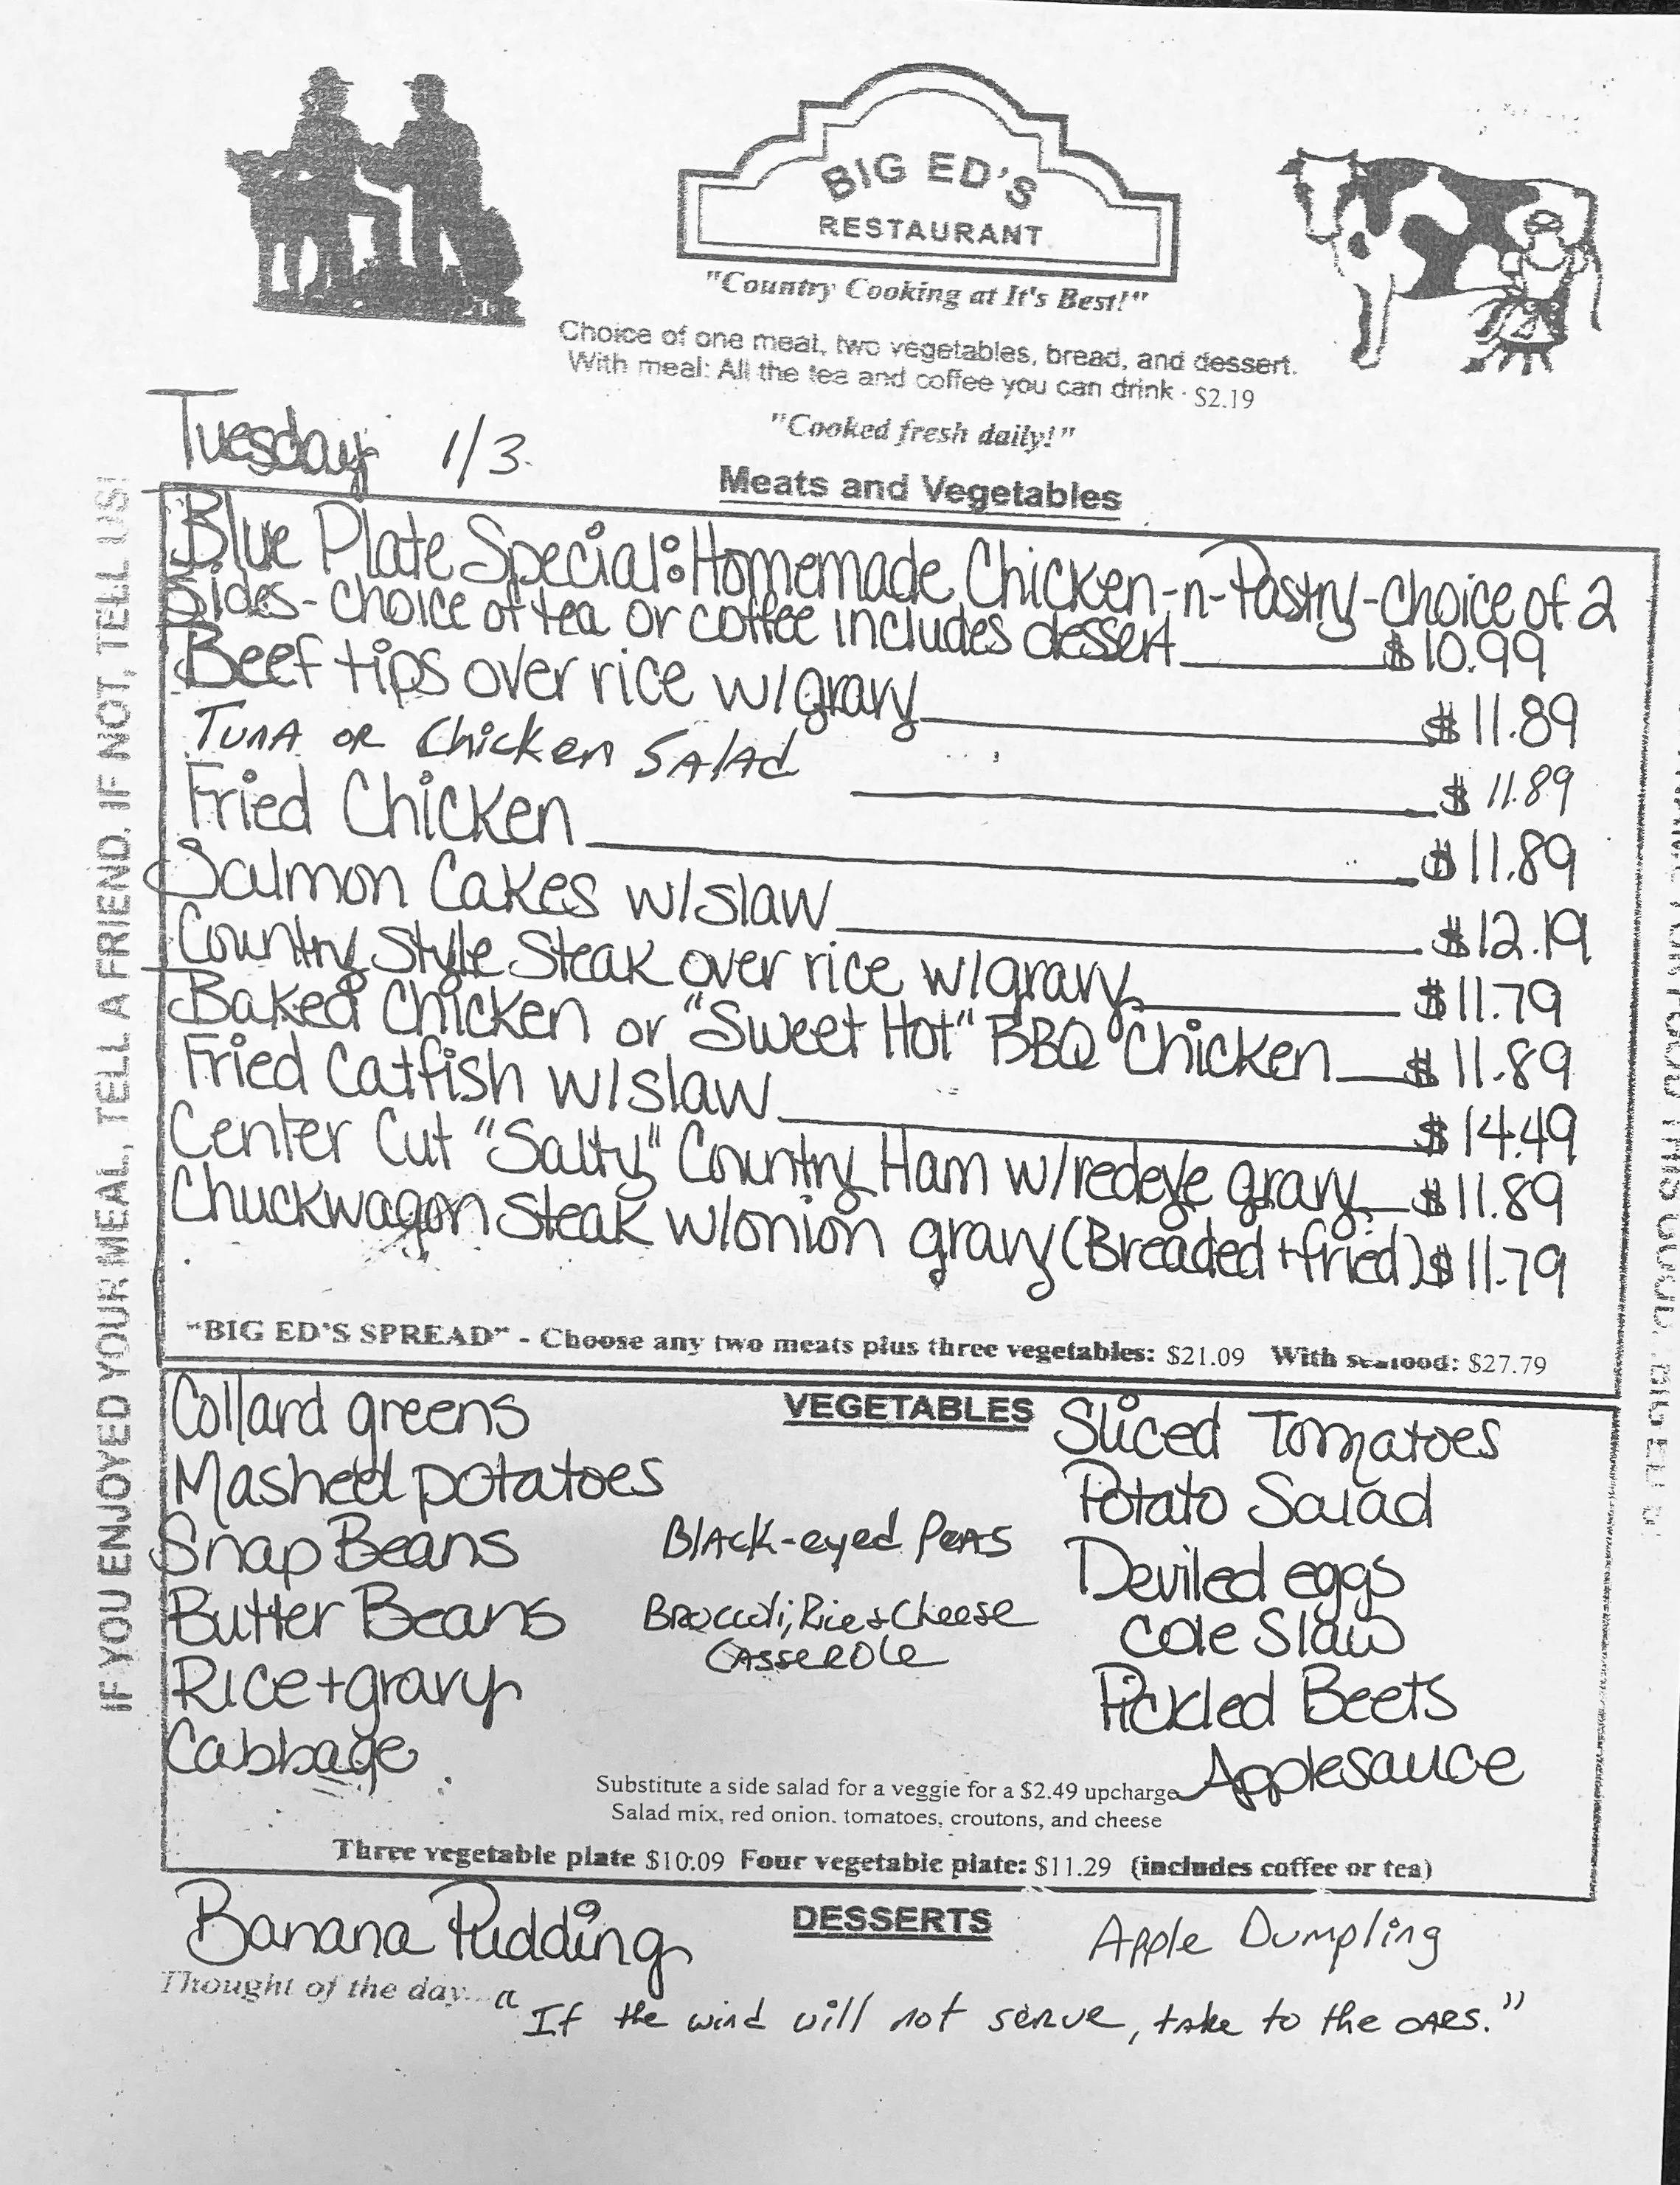 BIG ED'S
RESTAURANT
"Country Cooking at It's Best!"
Choice of one meat, two vegetables, bread, and dessert.
With meal: All the tea and coffee you can drink - $2.19
"Cooked fresh daily!"
Tuesday 1/3
Meats and Vegetables
Blue Plate Special: Homemade Chicken-n-Pastry-choice of 2
Sides-choice of tea or coffee includes dessert $10.99
Beef tips over rice w/gravy $11.89
Tuna or Chicken Salad $11.89
Fried Chicken $11.89
Salmon Cakes w/slaw $12.19
Country Style Steak over rice w/gravy $11.79
Baked Chicken or "Sweet Hot" BBQ Chicken $11.89
Fried Catfish w/slaw $14.49
Center Cut "Salty" Country Ham w/redeye gravy $11.89
Chuckwagon Steak w/onion gravy (Breaded + fried) $11.79
"BIG ED'S SPREAD" - Choose any two meats plus three vegetables: $21.09 With seafood: $27.79
VEGETABLES
Collard greens
Mashed potatoes
Snap Beans
Butter Beans
Rice + gravy
Cabbage
Black-eyed Peas
Broccoli, Rice & Cheese
Casserole
Sliced Tomatoes
Potato Salad
Deviled eggs
Cole Slaw
Pickled Beets
Applesauce
Substitute a side salad for a veggie for a $2.49 upcharge
Salad mix, red onion. tomatoes, croutons, and cheese
Three vegetable plate $10.09 Four vegetable plate: $11.29 (includes coffee or tea)
DESSERTS
Banana Pudding
Apple Dumpling
Thought of the day... "If the wind will not serve, take to the oars."
IF YOU ENJOYED YOUR MEAL, TELL A FRIEND, IF NOT, TELL US!